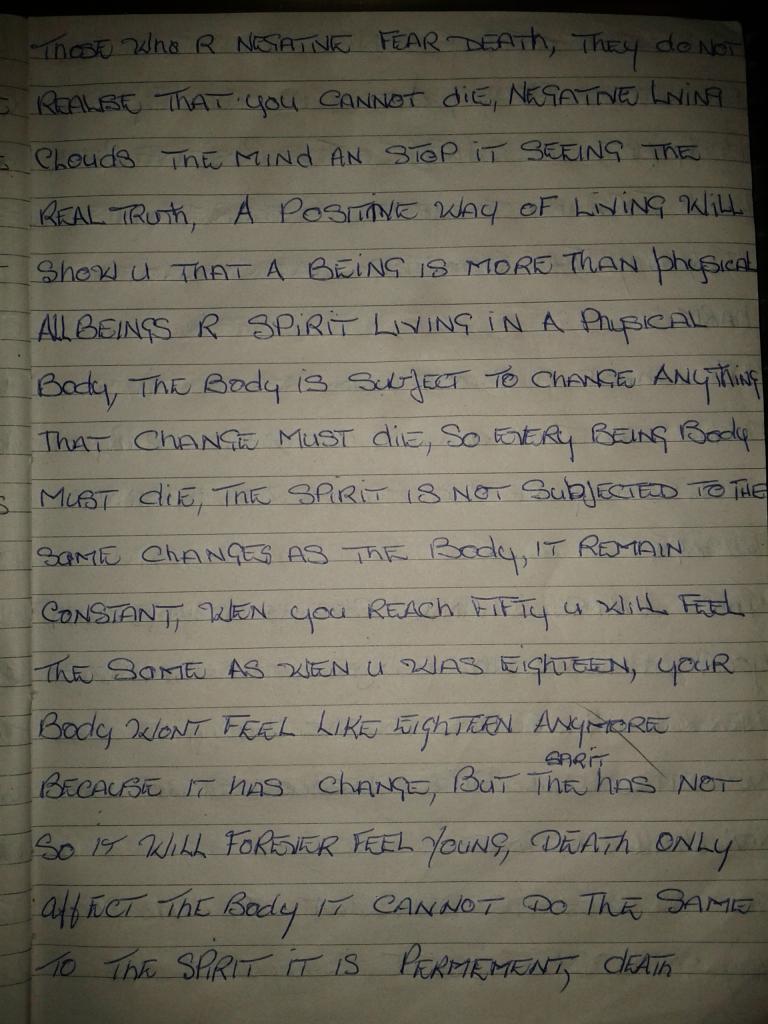 THOSE WHO R NEGATIVE FEAR DEATH, THEY do NOT
REALISE THAT you CANNOT diE, NEGATIVE LIVING
CLOUDS THE MIND AN STOP IT SEEING THE
REAL TRUTH, A POSITIVE WAY OF LIVING WILL
SHOW U THAT A BEING IS MORE THAN physical
ALL BEINGS R SPIRIT LIVING IN A PhySICAL
Body, THE Body is SUBJECT TO CHANGE ANYTHING
THAT CHANGE MUST diE, SO EVERY BEING Body
MUST diE, THE SPIRIT IS NOT SubJECTED TO THE
SAME CHANGES AS THE Body, IT REMAIN
CONSTANT, WEN you REACH FIFTY u WILL FEEL
THE SAME AS WEN U WAS EIGHTEEN, YOUR
Body WONT FEEL LIKE EIGHTEEN ANYMORE
BECAUSE IT HAS CHANGE, BUT THE SPRIT HAS NOT
SO IT WILL FOREVER FEEL YOUNG, DEATH ONLY
affECT THE Body IT CANNOT DO THE SAME
TO THE SPIRIT IT IS PERMEMENT, dEATH